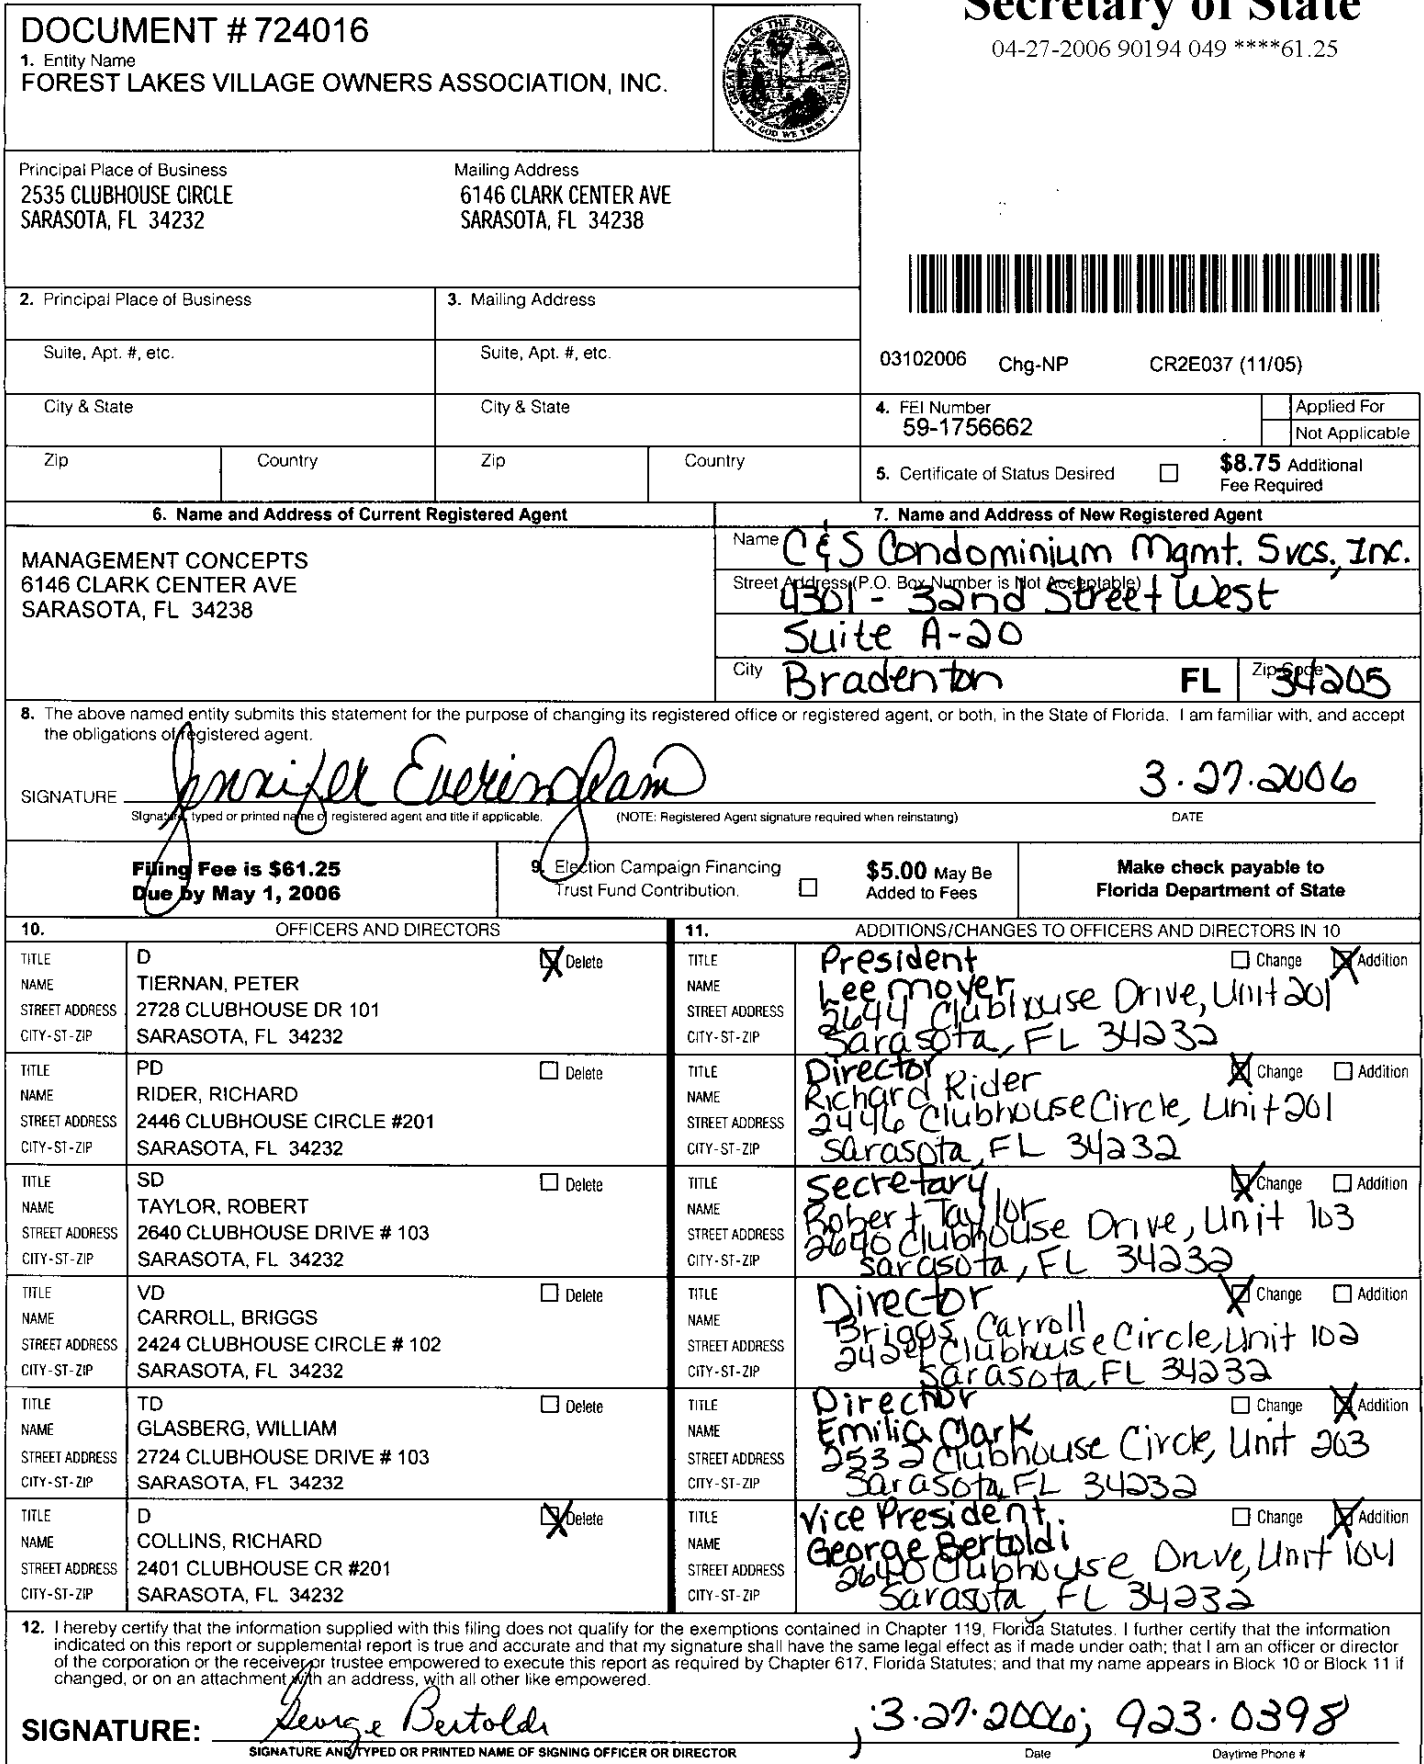 Secretary of State
04-27-2006 90194 049 ****61.25
DOCUMENT # 724016
1. Entity Name
FOREST LAKES VILLAGE OWNERS ASSOCIATION, INC.
GREAT SEAL OF THE STATE OF FLORIDA
IN GOD WE TRUST
Principal Place of Business
2535 CLUBHOUSE CIRCLE
SARASOTA, FL 34232
Mailing Address
6146 CLARK CENTER AVE
SARASOTA, FL 34238
2. Principal Place of Business
3. Mailing Address
Suite, Apt. #, etc.
Suite, Apt. #, etc.
03102006 Chg-NP CR2E037 (11/05)
City & State
City & State
4. FEI Number
59-1756662
Applied For
Not Applicable
Zip Country
Zip Country
5. Certificate of Status Desired
$8.75 Additional
Fee Required
6. Name and Address of Current Registered Agent
MANAGEMENT CONCEPTS
6146 CLARK CENTER AVE
SARASOTA, FL 34238
7. Name and Address of New Registered Agent
Name C & S Condominium Mgmt. Svcs., Inc.
Street Address (P.O. Box Number is Not Acceptable)
4301 - 32nd Street West
Suite A-20
City Bradenton FL Zip Code 34205
8. The above named entity submits this statement for the purpose of changing its registered office or registered agent, or both, in the State of Florida. I am familiar with, and accept
the obligations of registered agent.
SIGNATURE Jennifer Everingham 3.27.2006
Signature, typed or printed name of registered agent and title if applicable. (NOTE: Registered Agent signature required when reinstating) DATE
Filing Fee is $61.25
Due by May 1, 2006
9. Election Campaign Financing
Trust Fund Contribution.
$5.00 May Be
Added to Fees
Make check payable to
Florida Department of State
10. OFFICERS AND DIRECTORS
TITLE D Delete
NAME TIERNAN, PETER
STREET ADDRESS 2728 CLUBHOUSE DR 101
CITY-ST-ZIP SARASOTA, FL 34232
TITLE PD Delete
NAME RIDER, RICHARD
STREET ADDRESS 2446 CLUBHOUSE CIRCLE #201
CITY-ST-ZIP SARASOTA, FL 34232
TITLE SD Delete
NAME TAYLOR, ROBERT
STREET ADDRESS 2640 CLUBHOUSE DRIVE # 103
CITY-ST-ZIP SARASOTA, FL 34232
TITLE VD Delete
NAME CARROLL, BRIGGS
STREET ADDRESS 2424 CLUBHOUSE CIRCLE # 102
CITY-ST-ZIP SARASOTA, FL 34232
TITLE TD Delete
NAME GLASBERG, WILLIAM
STREET ADDRESS 2724 CLUBHOUSE DRIVE # 103
CITY-ST-ZIP SARASOTA, FL 34232
TITLE D Delete
NAME COLLINS, RICHARD
STREET ADDRESS 2401 CLUBHOUSE CR #201
CITY-ST-ZIP SARASOTA, FL 34232
11. ADDITIONS/CHANGES TO OFFICERS AND DIRECTORS IN 10
TITLE President Change Addition
NAME Lee Moyer
STREET ADDRESS 2644 Clubhouse Drive, Unit 201
CITY-ST-ZIP Sarasota, FL 34232
TITLE Director Change Addition
NAME Richard Rider
STREET ADDRESS 2446 Clubhouse Circle, Unit 201
CITY-ST-ZIP Sarasota, FL 34232
TITLE Secretary Change Addition
NAME Robert Taylor
STREET ADDRESS 2640 Clubhouse Drive, Unit 103
CITY-ST-ZIP Sarasota, FL 34232
TITLE Director Change Addition
NAME Briggs, Carroll
STREET ADDRESS 2424 Clubhouse Circle, Unit 102
CITY-ST-ZIP Sarasota, FL 34232
TITLE Director Change Addition
NAME Emilia Clark
STREET ADDRESS 2532 Clubhouse Circle, Unit 203
CITY-ST-ZIP Sarasota, FL 34232
TITLE Vice President Change Addition
NAME George Bertoldi
STREET ADDRESS 2640 Clubhouse Drive, Unit 104
CITY-ST-ZIP Sarasota, FL 34232
12. I hereby certify that the information supplied with this filing does not qualify for the exemptions contained in Chapter 119, Florida Statutes. I further certify that the information
indicated on this report or supplemental report is true and accurate and that my signature shall have the same legal effect as if made under oath; that I am an officer or director
of the corporation or the receiver or trustee empowered to execute this report as required by Chapter 617, Florida Statutes; and that my name appears in Block 10 or Block 11 if
changed, or on an attachment with an address, with all other like empowered.
SIGNATURE: George Bertoldi , 3.27.2006; 923.0398
SIGNATURE AND TYPED OR PRINTED NAME OF SIGNING OFFICER OR DIRECTOR Date Daytime Phone #